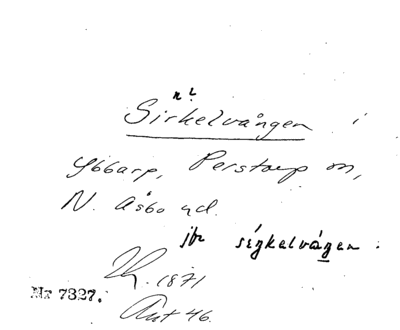 n?
Sirkelvången i
Ybbarp, Perstorp sn,
N. Åsbo hd.
jfr ségkelvágen.
1871
Nr 7327.
Ant 46.